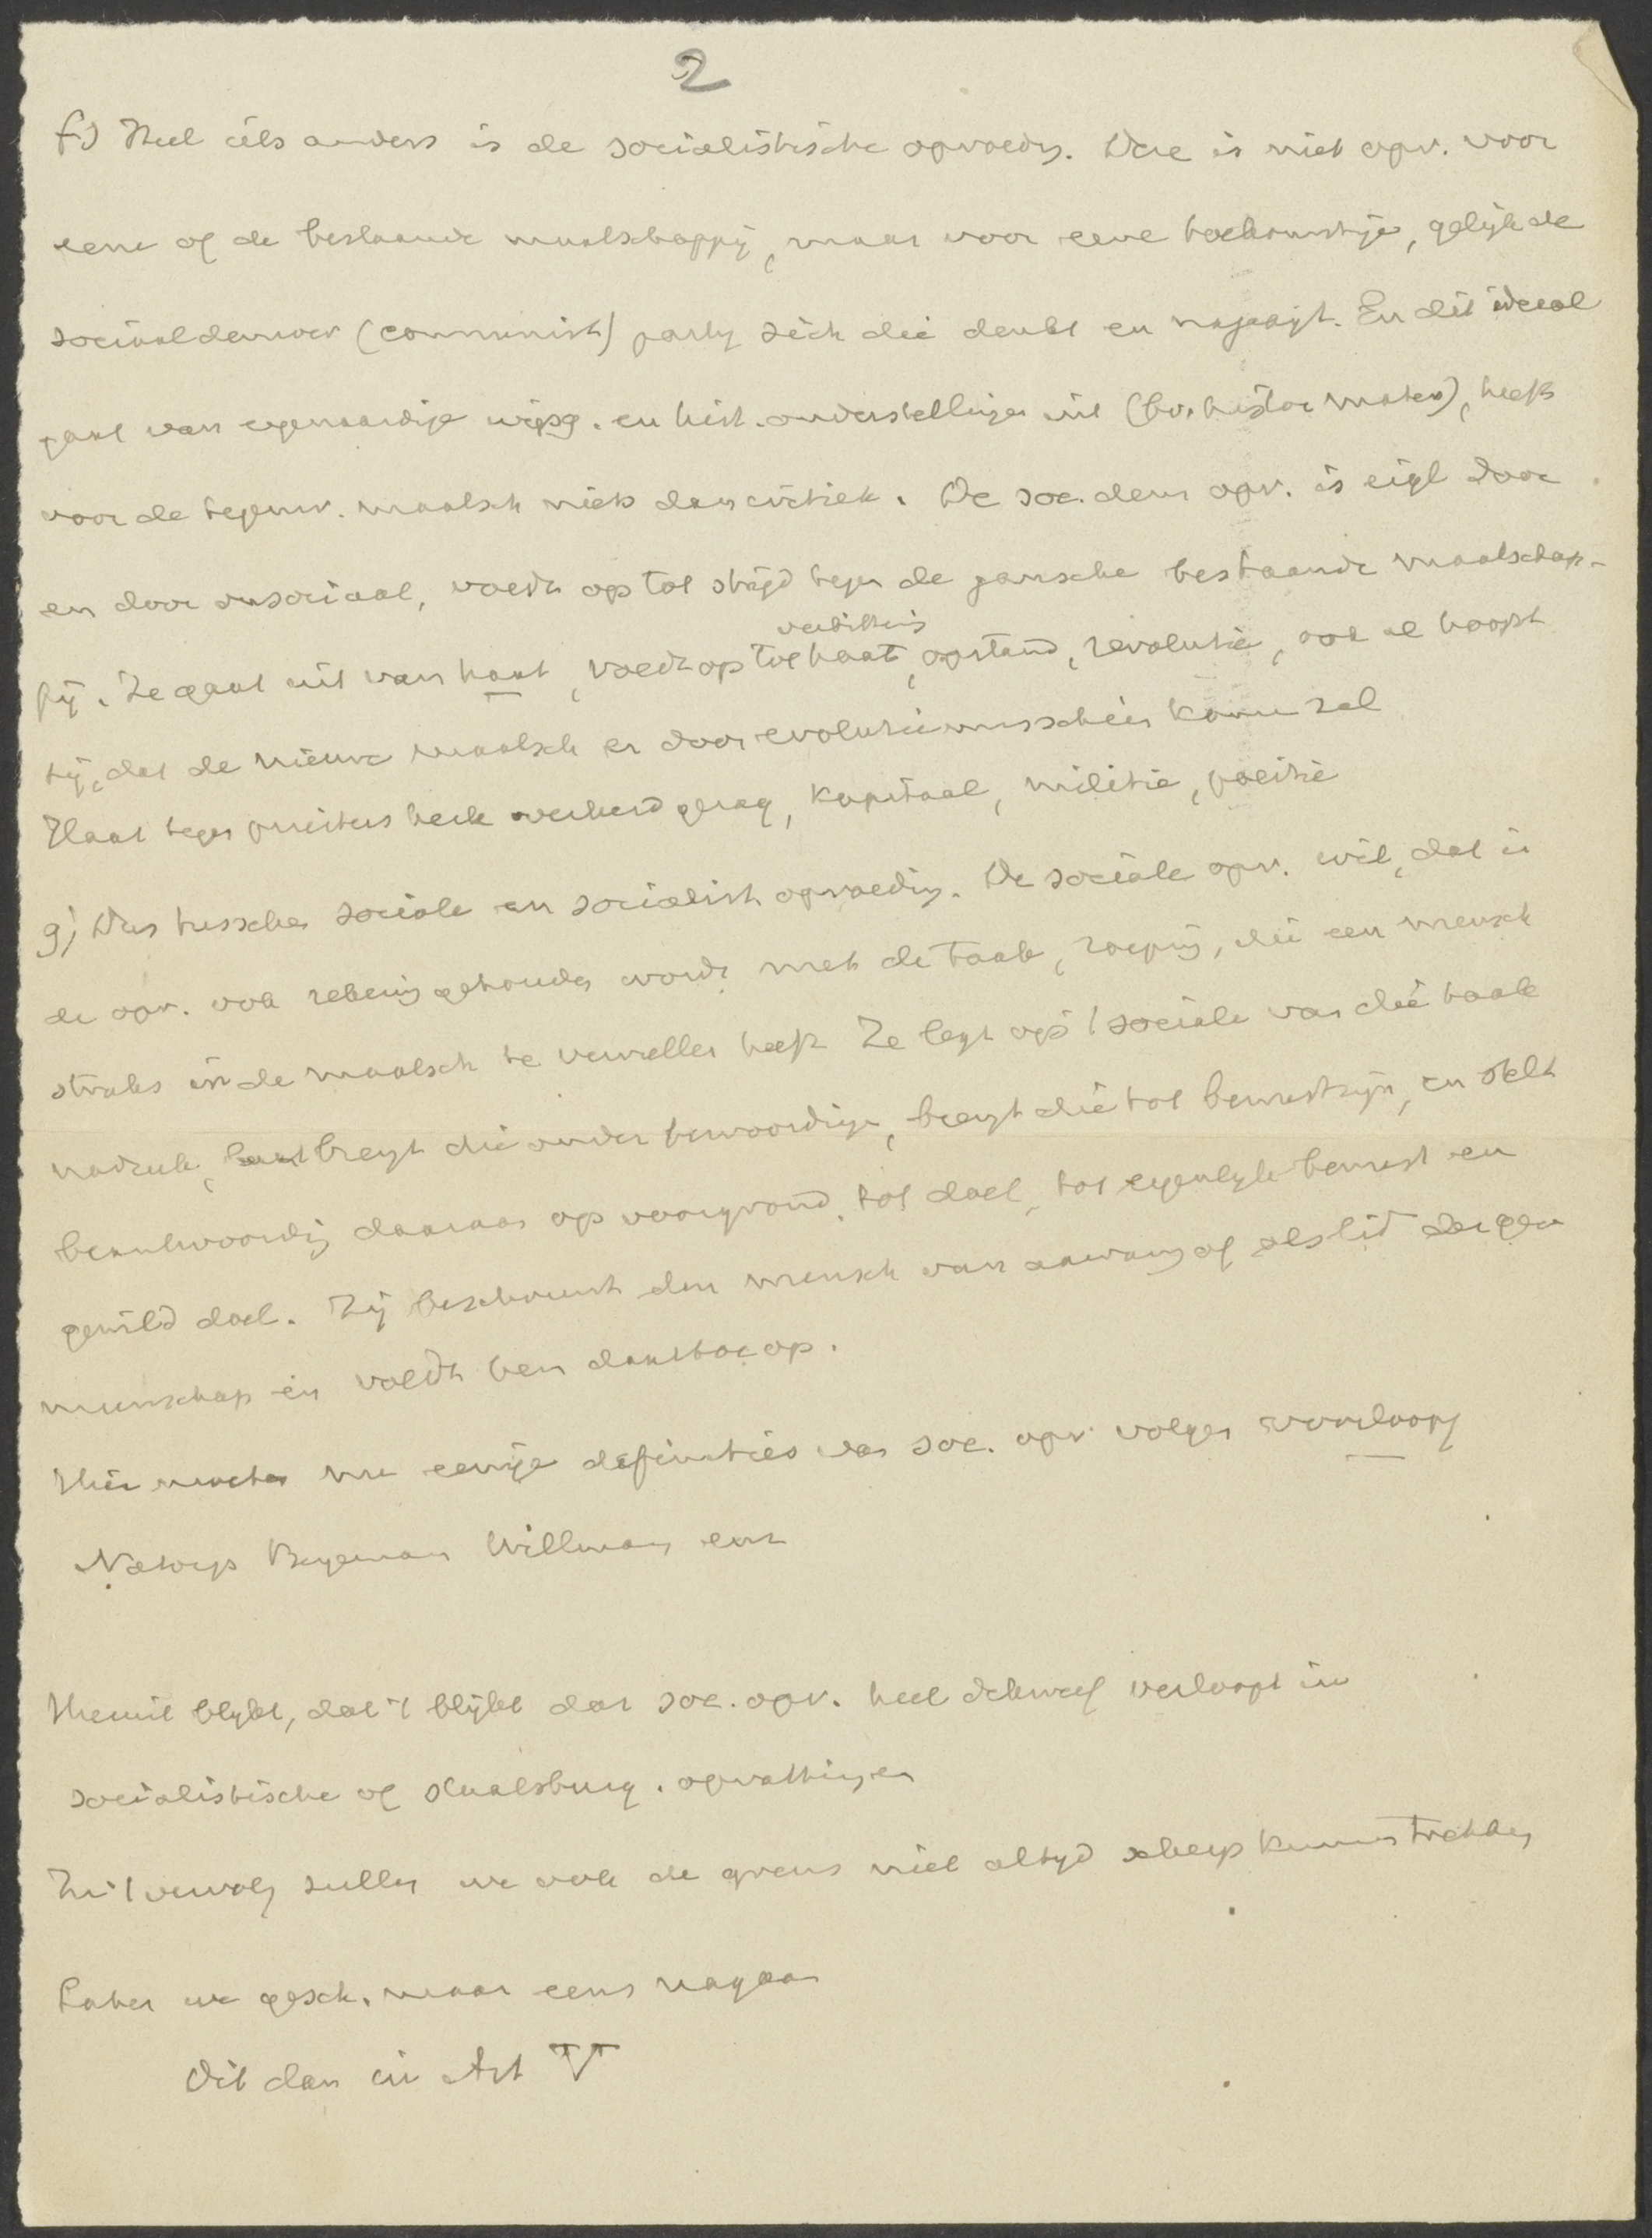 2
f) Heel iets anders is de socialistische opvoedg. Deze is niet opv. voor
eene of de bestaande maatschappij, maar voor eene toekomstige, gelijk de
sociaaldemocr (communist) partij zich die denkt en najaagt. En dit ideaal
gaat van eigenaardige wijsg. en hist. onderstellingen uit (bv. histor mater), heeft
voor de tegenw. maatsch niets dan critiek. De soc. dem opv. is eigl door
en door onsociaal, voedt op tot strijd tegen de gansche bestaande maatschap-
pij. Ze gaat uit van haat, voedt op tot haat, verbittering, opstand, revolutie, ook al hoopt
zij, dat de nieuwe maatsch er door evolutie misschien komen zal
Haat tegen priesters kerk overheid gezag, kapitaal, militie, politie
g) Dus tusschen sociale en socialist opvoeding. De sociale opv. wil, dat in
de opv. ook rekening gehouden wordt met de taak, roeping, die een mensch
straks in de maatsch te vervullen heeft Ze legt op 't sociale van die taak
nadruk, brengt die onder bewoordingen, brengt die tot bewustzijn, en stelt
beantwoording daaraan op voorgrond, tot doel, tot eigenlijk bewust en
gewild doel. Zij beschouwt den mensch van aanvang af als lid der gem
meenschap en voedt hem daartoe op.
Hier moeten nu eenige definities van soc. opv. volgen voorloopig
Natorp Bergemann Willmann enz
Hieruit blijkt, dat 't blijkt dat soc. opv. heel dikwerf verloopt in
socialistische of staatsburg. opvattingen
In 't vervolg zullen we ook de grens niet altijd scherp kunnen trekken
Laten we gesch. maar eens nagaan
Dit dan in Art V